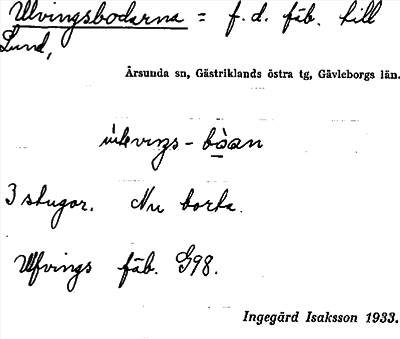 Ulvingsbodarna = f.d. fäb. till
Lund,
Årsunda sn, Gästriklands östra tg, Gävleborgs län.
bòan
3 stugor. Nu borta.
Ulfvings fäb. G98.
Ingegärd Isaksson 1933.